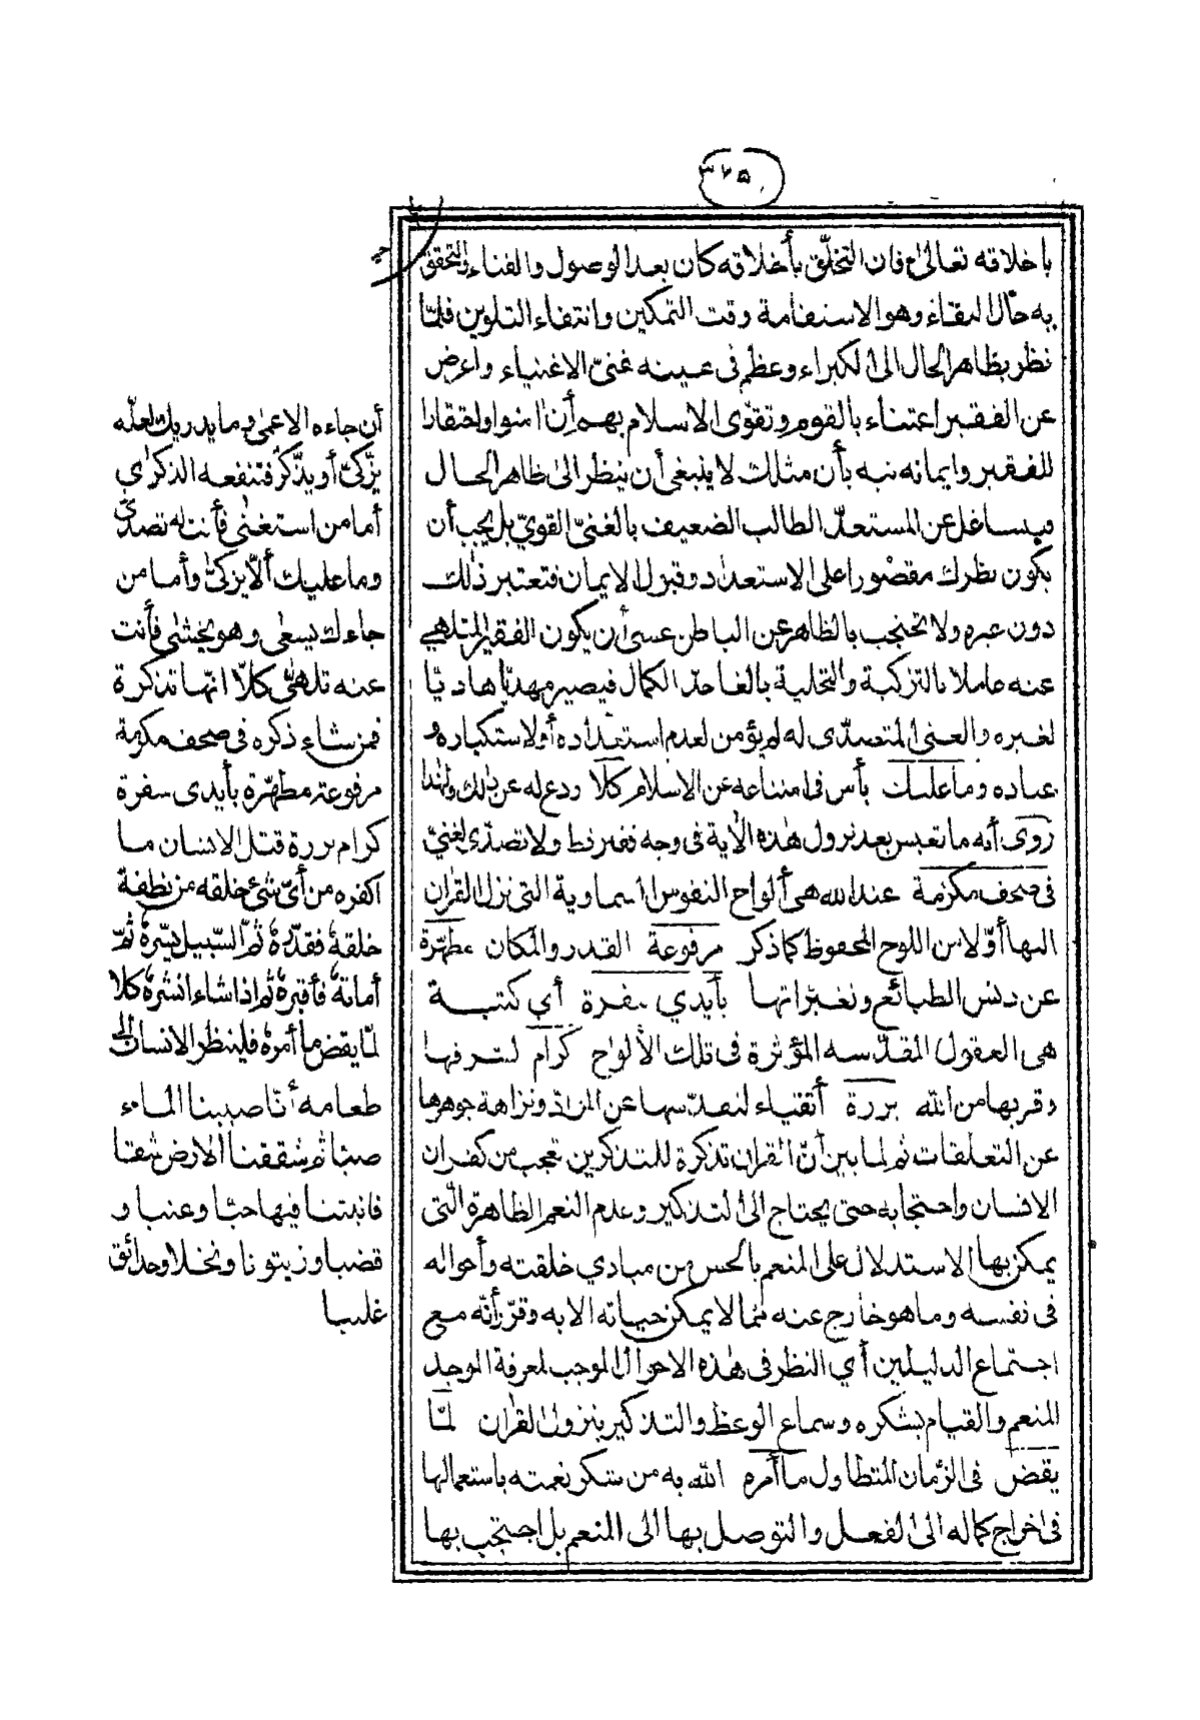 ٣٧٥
بأخلاقه تعالى فان التخلّق بأخلاقه كان بعد الوصول والفناء والتحقق
به حال البقاء وهو الاستقامة وقت التمكين وانتفاء التلوين فلمّا
نظر بظاهر الحال الى الكبراء وعظم فى عينه غنىّ الاغنياء واعرض
عن الفقير اعتناء بالقوم وتقوّى الاسلام بهم أن اٰمنوا واحتقارا
للفقير وايمانه نبه بأن مثلك لا ينبغى أن ينظر الى ظاهر الحال
ويساغل عن المستعدّ الطالب الضعيف بالغنىّ القوىّ بل يجب أن
يكون نظرك مقصورا على الاستعداد وقبول الايمان فتعتبر ذلك
دون غيره ولا تحتجب بالظاهر عن الباطن عسى أن يكون الفقير المتلهى
عنه عاملا بالتزكية والتحلية بالغا حدّ الكمال فيصير مهديّا هاديّا
لغيره والغنى المتصدّى له لم يؤمن لعدم استعداده أو لاستكباره و
عناده وما عليك بأس فى امتناعه عن الاسلام كلّا ردع له عن ذالك ولهذا
روى أنه ما تعبس بعد نزول هٰذه الاٰية فى وجه فقير قط ولا تصدّى لغنىّ
فى صحف مكرّمة عند الله هى ألواح النفوس السماوية التى نزل القراٰن
اليها أوّلا من اللوح المحفوظ كما ذكر مرفوعة القدر والمكان مطهّرة
عن دنس الطبائع وتغيّراتها بأيدي سفرة أي كتبة
هى العقول المقدّسه المؤثرة فى تلك الألواح كرام لشرفها
وقربها من الله بررة أتقياء لتقدّسها عن المواد ونزاهة جوهرها
عن التعلقات ثم لما بين أنّ القراٰن تذكرة للمتذكرين تعجب من كفران
الانسان واحتجابه حتى يحتاج الى التذكير وعدم النعم الظاهرة الّتى
يمكن بها الاستدلال على المنعم بالحس من مبادي خلقته وأحواله
فى نفسه وما هو خارج عنه ممّا لا يمكن حياته الا به وقرّر أنّه مع
اجتماع الدليلين أي النظر فى هٰذه الاحوال الموجب لمعرفة الموجد
المنعم والقيام بشكره وسماع الوعظ والتذكير بنزول القراٰن لمّا
يقض فى الزمان المتطاول ما أمره الله به من شكر نعمته باستعمالها
فى اخراج كماله الى الفعل والتوصل بها الى المنعم بل احتجب بها
أن جاءه الاعمىٰ وما يدريك لعلّه
يزّكىّ أو يذّكر فتنفعه الذكرٰى
أما من استغنى فأنت له تصدّىٰ
وما عليك ألّا يزكىّ وأما من
جاءك يسعى وهو يخشىٰ فأنت
عنه تلهّىٰ كلّا انّها تذكرة
فمن شاء ذكره فى صحف مكرمة
مرفوعة مطهّرة بأيدى سفرة
كرام بررة قتل الانسان ما
اكفره من أىّ شئ خلقه من نطفة
خلقهٗ فقدّرهٗ ثمّ السّبيل يسّرهٗ ثمّ
أماتهٗ فأقبرهٗ ثم اذا شاء انشرهٗ كلّا
لمّا يقض ما أمرهٗ فلينظر الانسان الى
طعامه أنّا صببنا الماء
صبّا ثم شققنا الارض شقّا
فانبتنا فيها حبّا وعنبا و
قضبا وزيتونا ونخلا وحدائق
غلبا